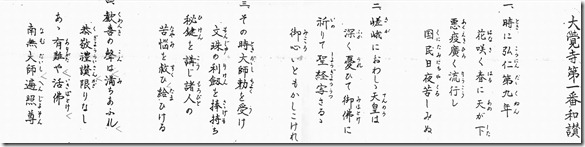 大覺寺第一番和讃
一、時に弘仁第九年
花咲く春に天が下
悪疫廣く流行し
国民日夜苦しみぬ
二、嵯峨におわし天皇は
深く憂ひて御佛に
祈りて聖経寫さるゝ
御心いともかしこけれ
三、その時大師勅を受け
文珠の利釼を捧持ち
秘鍵を講じ諸人の
苦悩を救ひ給ひける
歓喜の聲は満ちあふル
恭敬禮讃限りなし
あゝ有難や活佛
南無大師遍照尊